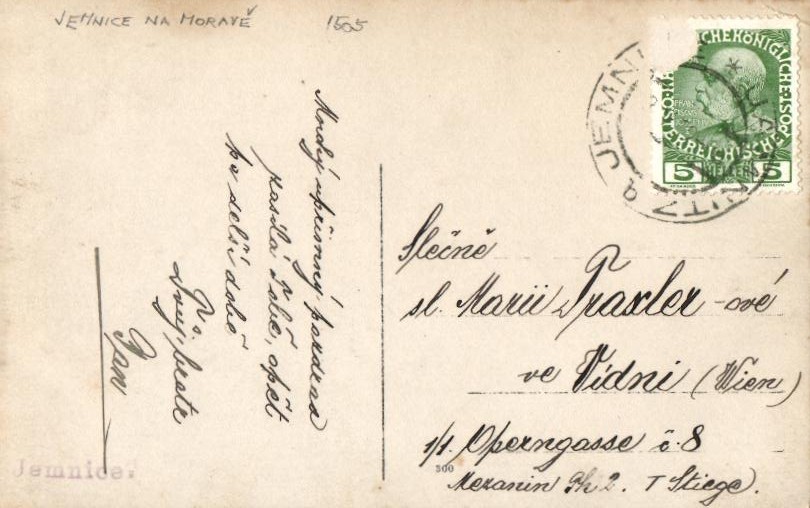 JEMNICE NA MORAVĚ 1505
JEMNI
JARMERITZ
K.K. ÖSTERREICHISCHE POST
5 HELLER 5
Mnohý upřímný pozdrav
zasílá Tobě, opět
po delší době
Tvůj bratr
Jan
Jemnice.
Slečně
sl. Marii Traxler-ové
ve Vídni (Wien)
1/1. Operngasse č. 8
Mezanin Th 2. I Stiege.
300